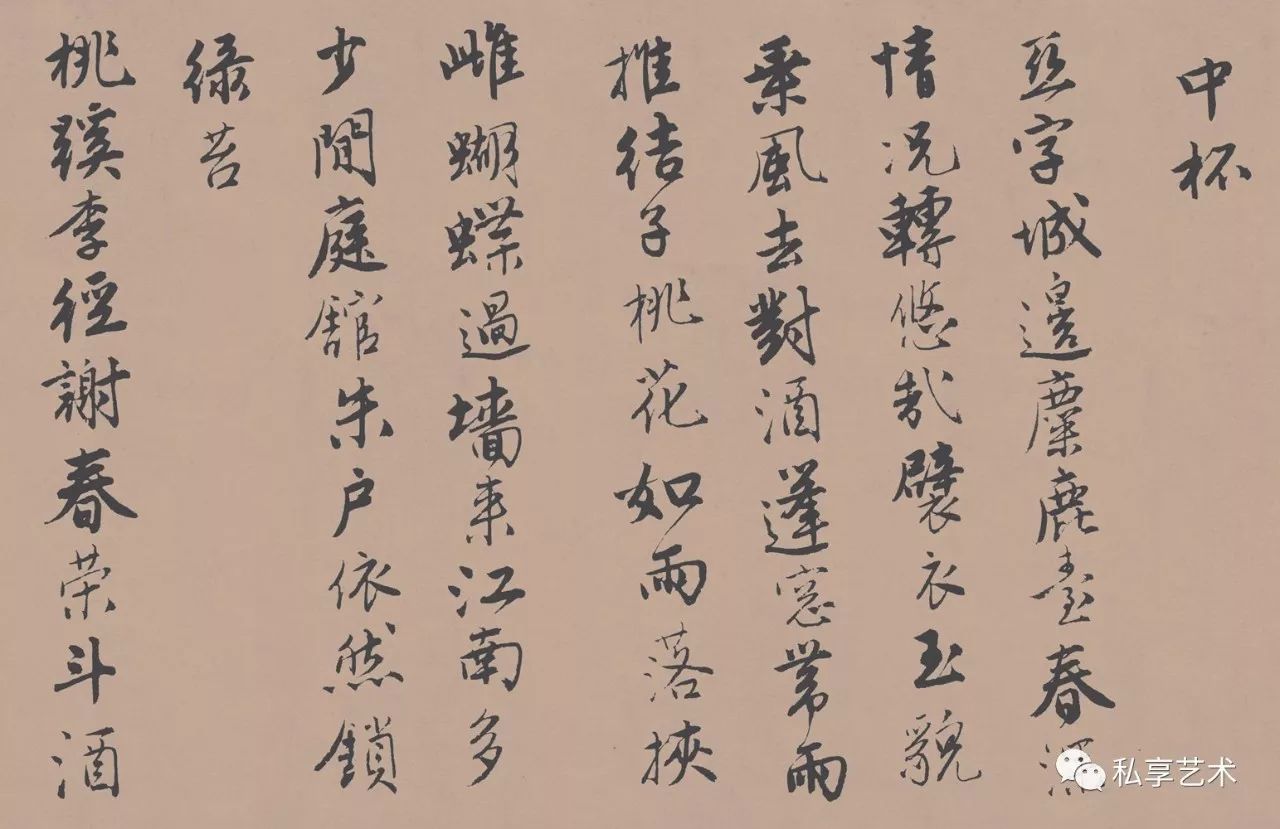 中杯
亞字城邊麋鹿臺春深
情况轉悠哉襞衣玉貌
乘風去對酒蓬窓帶雨
推結子桃花如雨落挾
雌蝴蝶過墻來江南多
少閒庭館朱户依然鎖
緑苔
桃蹊李徑謝春荣斗酒
私享艺术